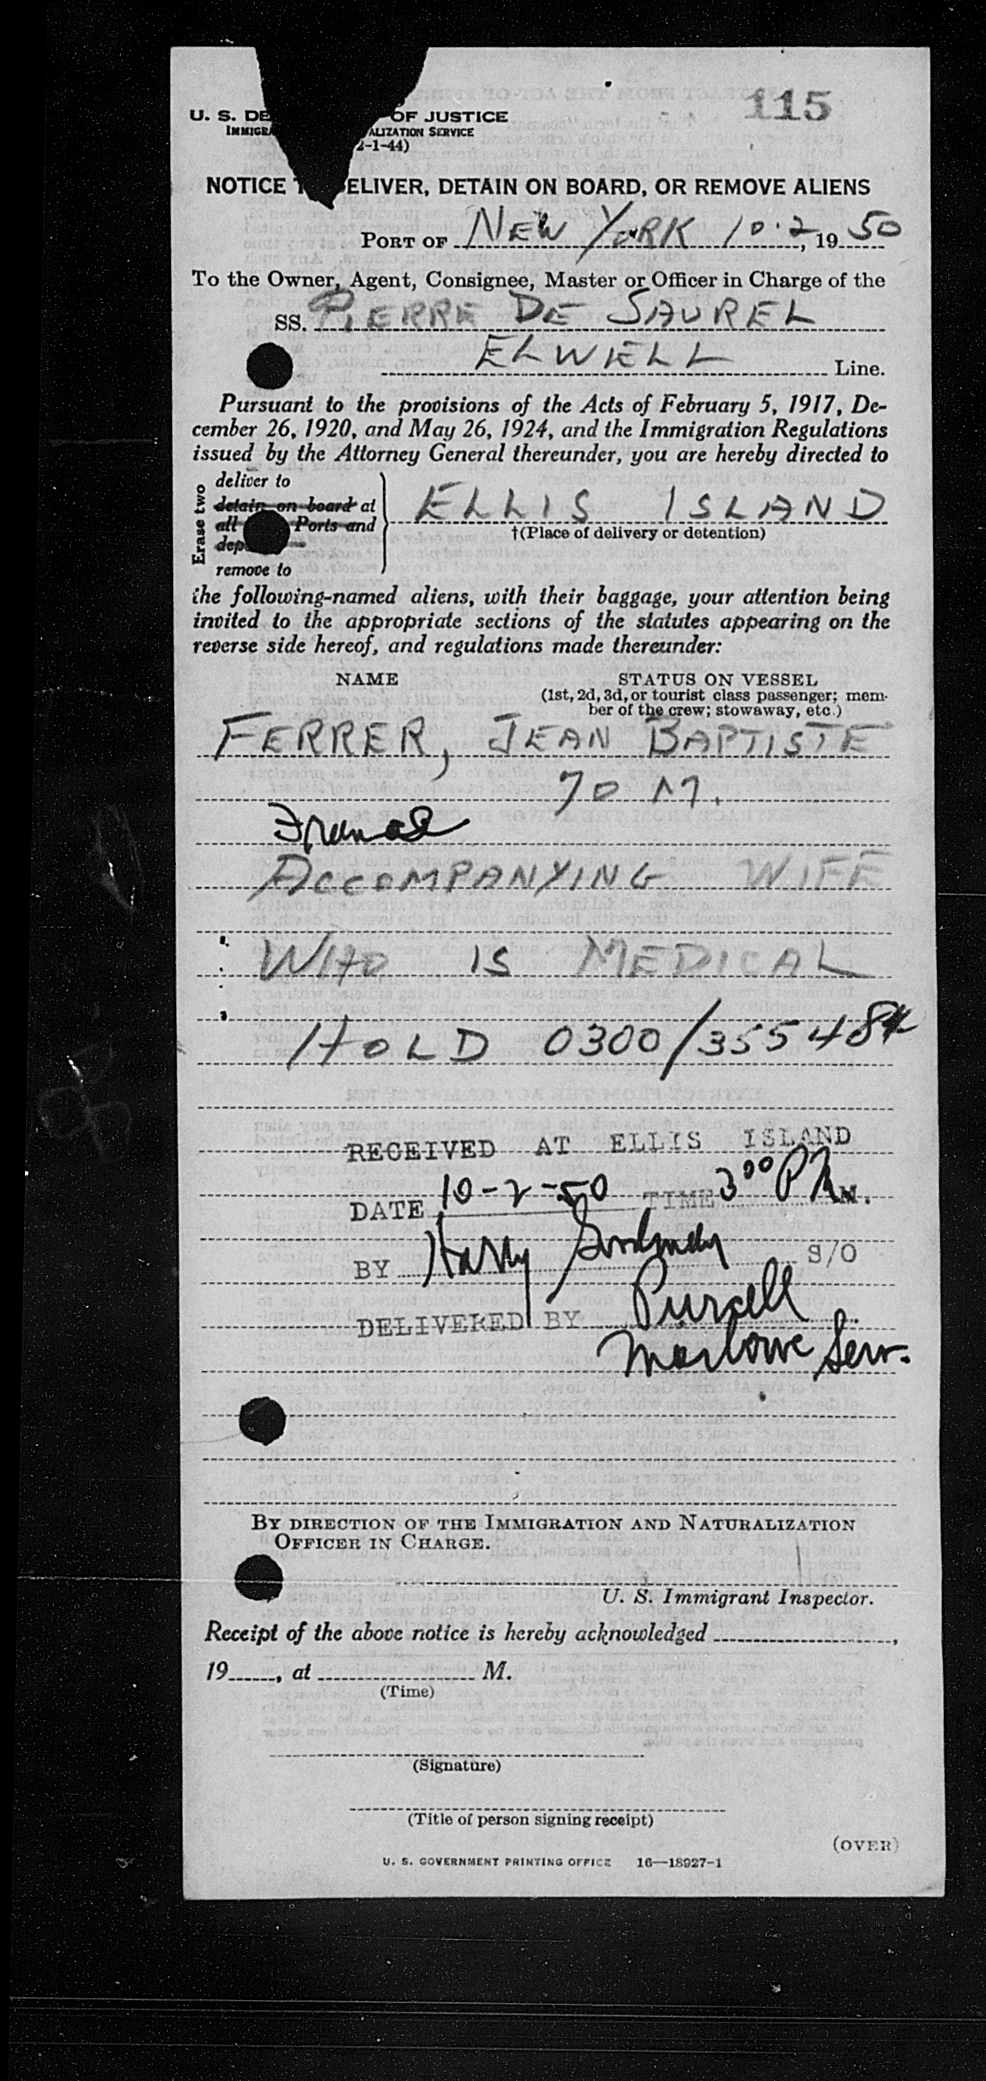 115
U. S. DE OF JUSTICE
IMMIGRA ALIZATION SERVICE
2-1-44)
NOTICE T ELIVER, DETAIN ON BOARD, OR REMOVE ALIENS
PORT OF NEW YORK 10·2, 19 50
To the Owner, Agent, Consignee, Master or Officer in Charge of the
SS. PIERRE DE SAUREL
ELWELL Line.
Pursuant to the provisions of the Acts of February 5, 1917, De-
cember 26, 1920, and May 26, 1924, and the Immigration Regulations
issued by the Attorney General thereunder, you are hereby directed to
Erase two
deliver to
detain on board at
all Ports and
dep
remove to
ELLIS ISLAND
†(Place of delivery or detention)
the following-named aliens, with their baggage, your attention being
invited to the appropriate sections of the statutes appearing on the
reverse side hereof, and regulations made thereunder:
NAME STATUS ON VESSEL
(1st, 2d, 3d, or tourist class passenger; mem-
ber of the crew; stowaway, etc.)
FERRER, JEAN BAPTISTE
70 M.
ACCOMPANYING WIFE
WHO IS MEDICAL
HOLD 0300/355484
RECEIVED AT ELLIS ISLAND
DATE 10-2-50 TIME 3 00 P M.
BY Harry S/O
DELIVERED BY Purcell
Serv.
BY DIRECTION OF THE IMMIGRATION AND NATURALIZATION
OFFICER IN CHARGE.
U. S. Immigrant Inspector.
Receipt of the above notice is hereby acknowledged ,
19 , at M.
(Time)
(Signature)
(Title of person signing receipt)
(OVER)
U. S. GOVERNMENT PRINTING OFFICE 16—18927-1